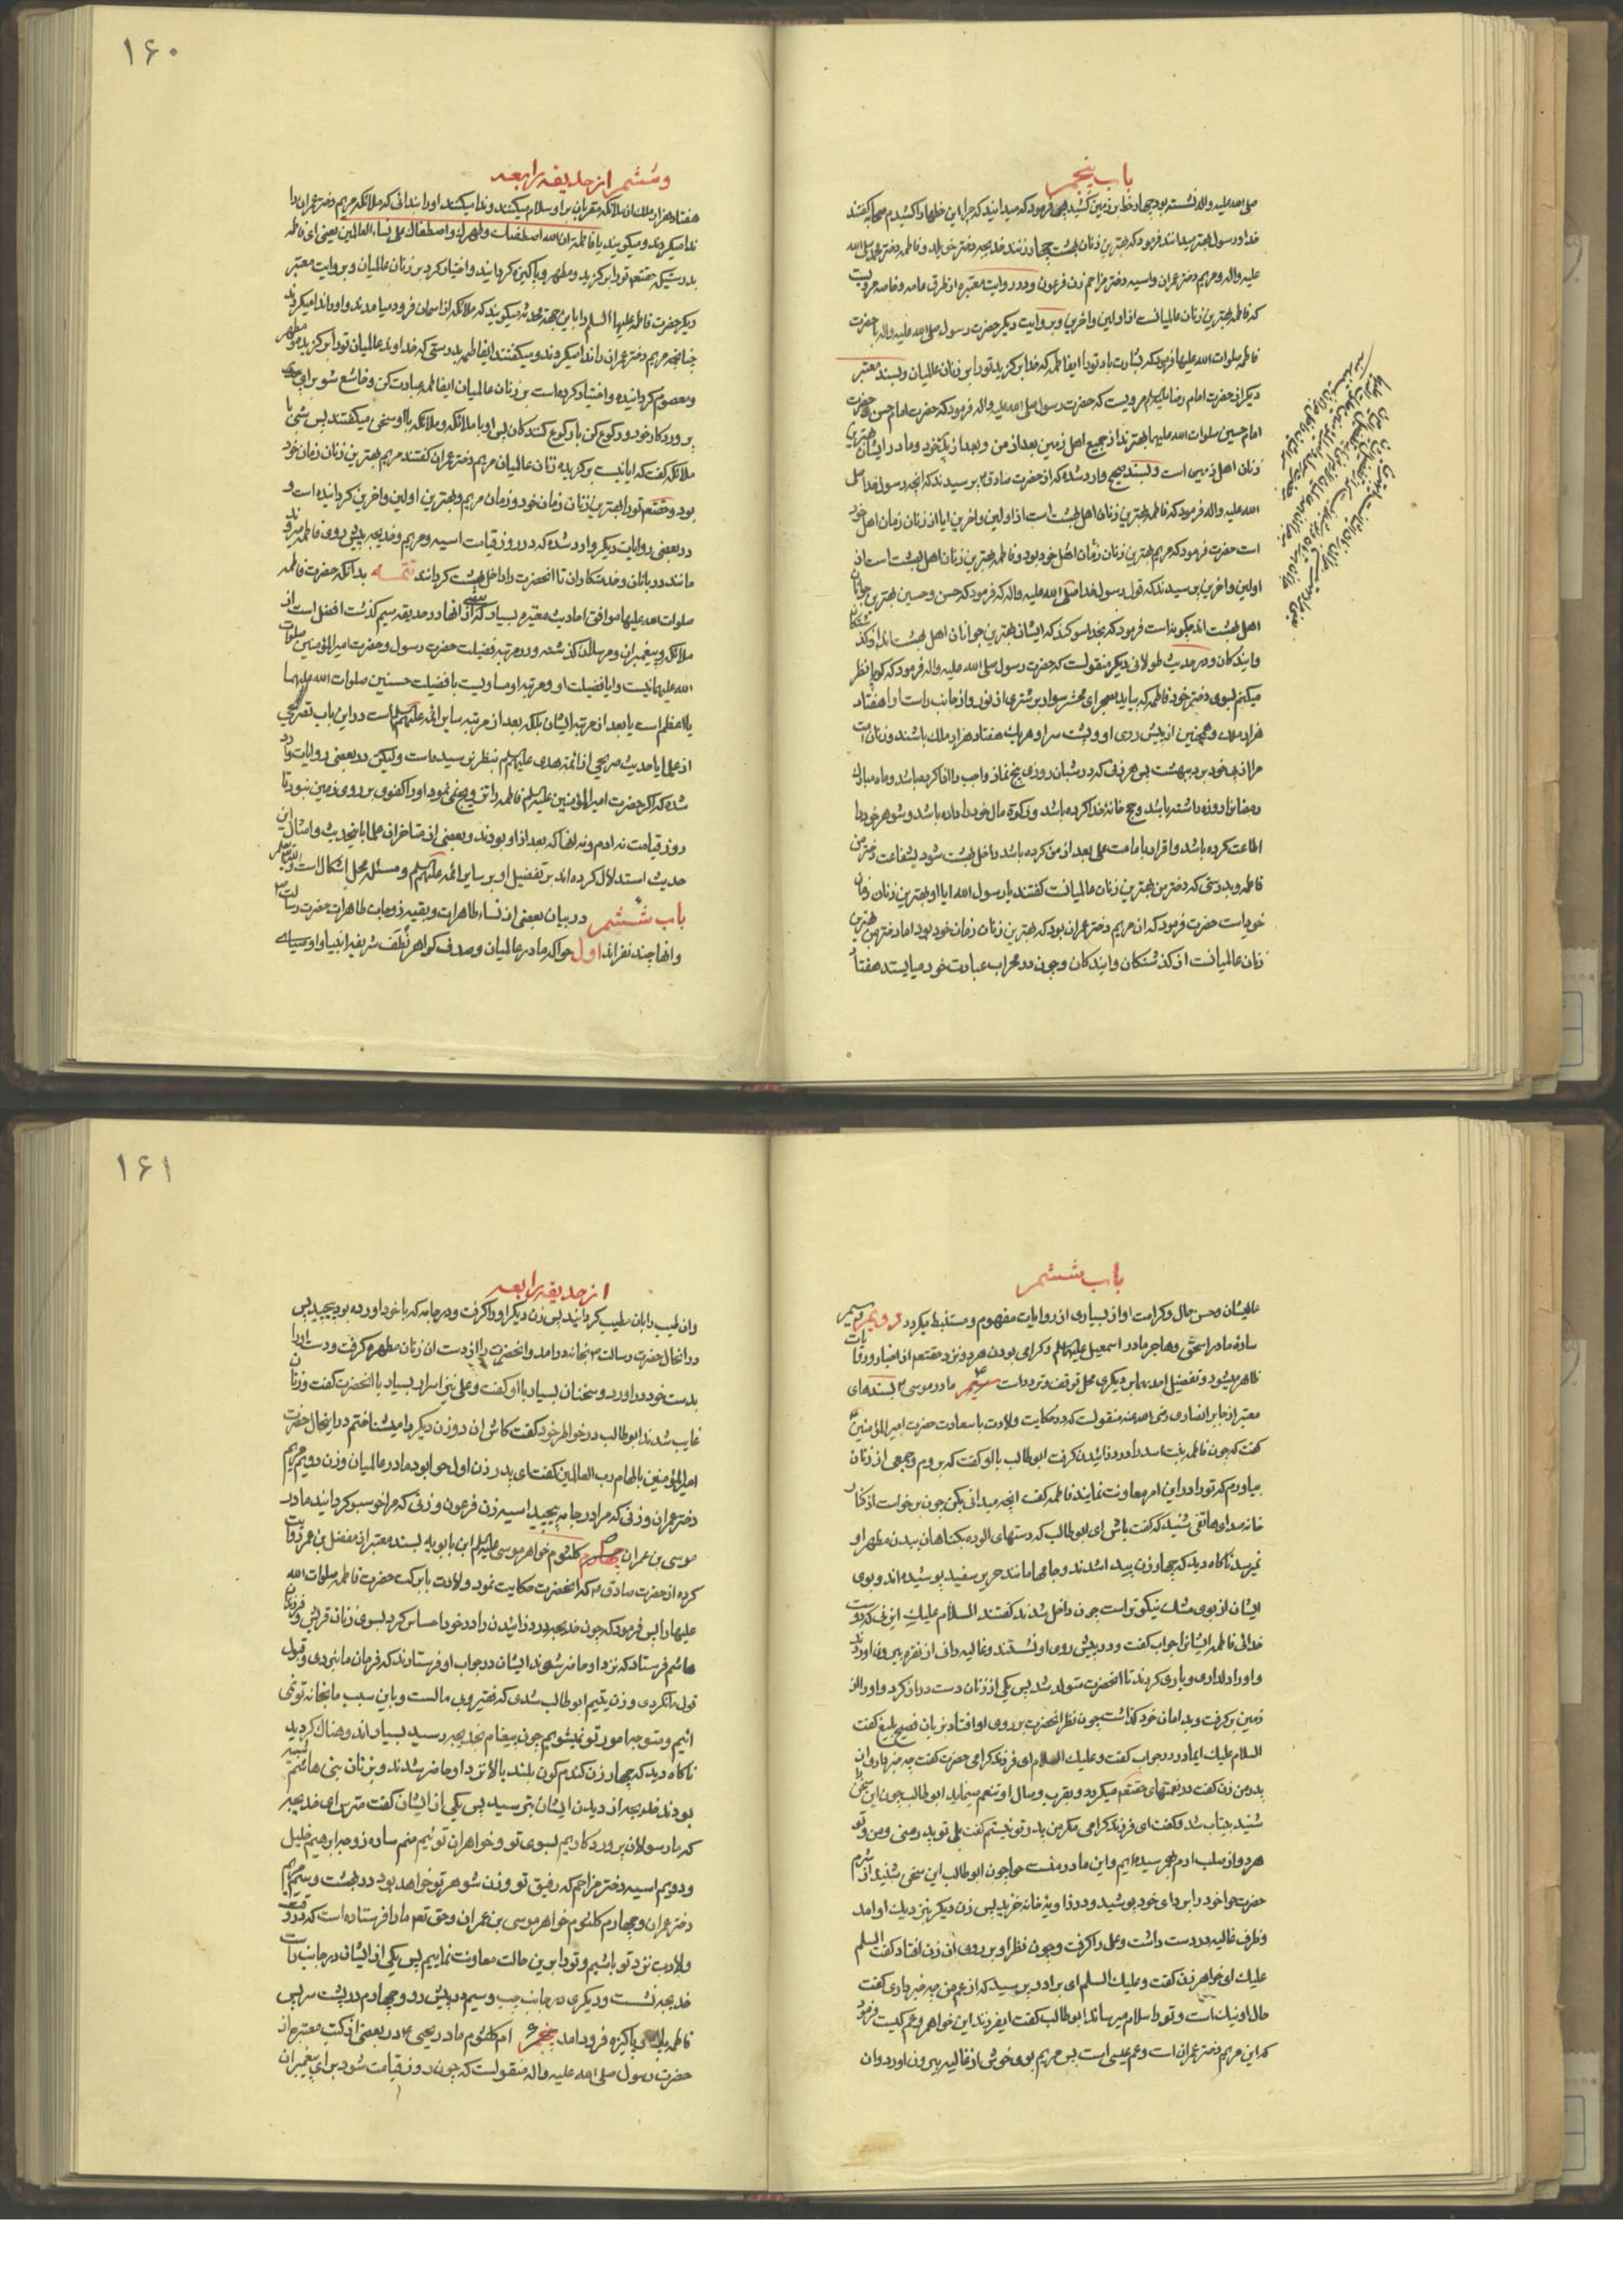 باب پنجم
صلی الله علیه واله نشسته بود چهار خط بر زمین کشید پس فرمود که میدانید که چرا این خطها را کشیدم صحابه گفتند
خدا و رسول بهتر میدانند فرمود که بهترین زنان بهشت چهار زنند خدیجه دختر خویلد و فاطمه دختر محمد صلی الله
علیه واله و مریم دختر عمران و اسیه دختر مزاحم زن فرعون و در روایت معتبره از طرق عامه و خاصه مرویست
که فاطمه بهترین زنان عالمیانست از اولین و اخرین و بروایت دیگر حضرت رسول صلی الله علیه واله با حضرت
فاطمه صلوات الله علیها فرمود که بشارت باد تو را ایفاطمه که خدا برگزید تو را بر زنان عالمیان و بسند معتبر
دیگر از حضرت امام رضا علیه السلم مرویست که حضرت رسول صلی الله علیه واله فرمود که حضرت امام حسن و حضرت
امام حسین صلوات الله علیهما بهترند از جمیع اهل زمین بعد از من و بعد از پدر خود و مادر ایشان بهترین
زنان اهل زمین است و بسند صحیح وارد شده که از حضرت صادق پرسیدند که انچه رسول خدا صلی
الله علیه واله فرمود که فاطمه بهترین زنان اهل بهشت است از اولین و اخرین ایا از زنان زمان اهل خود
است حضرت فرمود که مریم بهترین زنان زمان اهل خود بود و فاطمه بهترین زنان اهل بهشت است از
اولین و اخرین پرسیدند که قول رسول خدا صلی الله علیه واله که فرمود که حسن و حسین بهترین جوانان
اهل بهشت اند چگونه است فرمود که بخدا سوگند که ایشان بهترین جوانان اهل بهشت اند از گذشتگان
و ایندگان و در حدیث طولانی دیگر منقولست که حضرت رسول صلی الله علیه واله فرمود که گویا نظر
میکنم بسوی دختر خود فاطمه که بیاید بصحرای محشر سوار بر شتری از نور و از جانب راست او هفتاد
هزار ملک و همچنین از پیش روی او و پشت سر او هر یک هفتاد هزار ملک باشند و زنان امت
مرا از پی خود برد ببهشت پس هر زنی که در شبان روزی پنج نماز واجب را ادا کرده باشد و ماه مبارک
رمضانرا روزه داشته باشد و حج خانه خدا کرده باشد و زکوة مال خود را داده باشد و شوهر خود را
اطاعت کرده باشد و اقرار بامامت علی بعد از من کرده باشد داخل بهشت شود بشفاعت دختر من
فاطمه و بدرستی که دختر من بهترین زنان عالمیانست گفتند یا رسول الله ایا او بهترین زنان زمان
خود است حضرت فرمود که ان مریم دختر عمران بود که بهترین زنان زمان خود بود اما دختر من بهترین
زنان عالمیانست از گذشتگان و ایندگان و چون در محراب عبادت خود میایستد هفتاد
۱۶۰
و ششم از حدیقه رابعه
هفتاد هزار ملک از ملائکه مقربان بر او سلام میکنند و ندا میکنند او را بندائی که ملائکه مریم دختر عمران را
ندا میکردند و میگویند یا فاطمة ان الله اصطفیک وطهرک واصطفاک علی نساء العالمین یعنی ای فاطمه
بدرستیکه حقتعالی تو را برگزید و مطهر و پاکیزه گردانید و اختیار کرد بر زنان عالمیان و بروایت معتبر
دیگر حضرت فاطمه علیها السلم را باین جهة محدثه میگویند که ملائکه از اسمان فرود میامدند و او را ندا میکردند
چنانچه مریم دختر عمران را ندا میکردند و میگفتند ایفاطمه بدرستی که خداوند عالمیان تو را برگزید و مطهر
و معصوم گردانیده و اختیار کرده است بر زنان عالمیان ایفاطمه عبادت کن و خاشع شو برای
پروردگار خود و رکوع کن با رکوع کنندکان پس او با ملائکه و ملائکه با او سخن میگفتند پس شبی با
ملائکه گفت که ایا نیست برگزیده زنان عالمیان مریم دختر عمران گفتند مریم بهترین زنان زمان خود
بود و حقتعم تو را بهترین زنان زمان خود و زمان مریم و بهترین اولین و اخرین گردانیده است و
در بعضی روایات دیگر وارد شده که در روز قیامت اسیه و مریم و خدیجه پیش روی فاطمه میروند
مانند دربانان و خدمتکاران تا انحضرت را داخل بهشت گردانند تتمه بدانکه حضرت فاطمه
صلوات الله علیها موافق احادیث معتبره بسیار که از انها در حدیقه سیم گذشت افضل است از
ملائکه و پیغمبران و مرسلان گذشته و در مرتبه فضیلت حضرت رسول و حضرت امیرالمؤمنین صلوات
الله علیهما نیست و ایا فضیلت او و مرتبه او مساویست با فضیلت حسنین صلوات الله علیهما
یا اعظم است یا بعد از مرتبه ایشان بلکه بعد از مرتبه سایر ائمه علیهم السلم است در این باب تصریحی
از علما یا حدیث صریحی از ائمه هدی علیهم السلم بنظر نرسیده است و لیکن در بعضی روایات وارد
شده که اگر حضرت امیرالمؤمنین علیه السلم فاطمه را تزویج نمی نمود او را کفوی بر روی زمین نبود تا
روز قیامت نه ادم و نه انها که بعد از او بودند و بعضی از متاخران علما باینحدیث و امثال این
حدیث استدلال کرده اند بر تفضیل او بر سایر ائمه علیهم السلم و مسئله محل اشکال است
باب ششم در بیان بعضی از نساء طاهرات و بقیه زوجات طاهرات حضرت رسالت
و انها چند نفرند اول حوا که مادر عالمیان و صدف گواهر نطف شریفه انبیا و اوصیا
باب ششم
عالیشان و حسن حال و کرامت او از بسیاری از روایات مفهوم و مستنبط میگردد دویم و سیم
ساره مادر اسحق و هاجر مادر اسمعیل علیهم السلم و گرامی بودن هر دو نزد حقتعم از اخبار و روایات
ظاهر میشود و تفضیل احدیهما بر دیگری محل توقف و تردد است مادر موسی بسندهای
معتبر از جابر انصاری رضی الله عنه منقولست که در حکایت ولادت با سعادت حضرت امیرالمؤمنین
گفت که چون فاطمه بنت اسد را درد زائیدن گرفت ابوطالب با او گفت که بروم و جمعی از زنان
بیاورم که تو را در این امر معاونت نمایند فاطمه گفت انچه میدانی بکن چون برخواست از کنار
خانه صدای هاتفی شنید که گفت باش ای ابوطالب که دستهای الوده بگناهان ببدن مطهر او
نمیرسد ناگاه دید که چهار زن پیدا شدند و جامها مانند حریر سفید پوشیده اند و بوی
ایشان از بوی مشک نیکوتر است چون داخل شدند گفتند السلام علیک ای زنی که دوست
خدائی فاطمه ایشانرا جواب گفت و در پیش روی او نشستند و غالیه دانی از نقره بیرون اوردند
و او را دلداری و یاری کردند تا انحضرت متولد شد پس یکی از زنان دست دراز کرد و او را از
زمین برگرفت و بدامان خود گذاشت چون نظر انحضرت بر روی او افتاد بزبان فصیح بلیغ گفت
السلام علیک ایمادر در جواب گفت و علیک السلام ای فرزند گرامی حضرت گفت چه خبر داری از
پدر من زن گفت در نعمتهای حقتعم میگردد و بقرب وصال او تنعم مینماید ابوطالب چون این سخن
شنید بیتاب شد و گفت ای فرزند گرامی مگر من پدر تو نیستم گفت بلی تو پدر منی و من و تو
هر دو از صلب ادم بهم رسیده ایم و این مادر منست حوا چون ابوطالب این سخن شنید از شرم
حضرت حوا خود را بردای خود پوشید و در زاویه خانه خزید پس زن دیگر بنزدیک او امد
و ظرف غالیه در دست داشت و علی را گرفت و چون نظر او بر روی ان زن افتاد گفت السلم
علیک ای خواهر زن گفت و علیک السلم ای برادر پرسید که از عم من چه خبر داری گفت
حال او نیک است و تو را سلام میرساند ابوطالب گفت ایفرزند این خواهر و عم کیست فرمود
که این مریم دختر عمران است و عم عیسی است پس مریم بوی خوش از غالیه بیرون اورد و ان
۱۶۱
از حدیقه رابعه
و ان طیب را بان مطیب گردانید پس زن دیگر او را گرفت و در جامه که با خود اورده بود پیچید پس
در انحال حضرت رسالت بخانه درامد و انحضرت را از دست ان زنان مطهره گرفت و دست او را
بدست خود دراورد و سخنان بسیار با او گفت و علی نیز اسرار بسیار با انحضرت گفت و زنان
غایب شدند ابوطالب در خواطر خود گفت کاش ان دو زن دیگر را میشناختم در اینحال حضرت
امیرالمؤمنین بالهام رب العالمین گفت ای پدر زن اول حوا بود مادر عالمیان و زن دویم مریم
دختر عمران و زنی که مرا در جامه پیچید اسیه زن فرعون و زنی که مرا خوسبو گردانید مادر
موسی بن عمران چهارم کلثوم خواهر موسی علیه السلم ابن بابویه بسند معتبر از مفضل بن عمر روایت
کرده از حضرت صادق که انحضرت حکایت نمود ولادت با برکت حضرت فاطمه صلوات الله
علیها را پس فرمود که چون خدیجه درد زائیدن را در خود احساس کرد بسوی زنان قریش و فرزندان
هاشم فرستاد که نزد او حاضر شوند ایشان در جواب او فرستادند که فرمان ما نبردی و قبول
قول ما نکردی و زن یتیم ابوطالب شدی که فقیر و بی مالست و باین سبب ما بخانه تو نمی
ائیم و متوجه امور تو نمیشویم چون پیغام بخدیجه رسید بسیار اندوهناک گردید
ناگاه دید که چهار زن گندم گون بلند بالا نزد او حاضر شدند و بزنان بنی هاشم شبیه
بودند خدیجه از دیدن ایشان بترسید پس یکی از ایشان گفت مترس ای خدیجه
که ما رسولان پروردگاریم بسوی تو و خواهران توئیم منم ساره زوجه ابرهیم خلیل
و دویم اسیه دختر مزاحم که رفیق تو و زن شوهر تو خواهد بود در بهشت و سیم مریم
دختر عمران و چهارم کلثوم خواهر موسی بن عمران و حق تعم ما را فرستاده است که در وقت
ولادت نزد تو باشیم و تو را بر این حالت معاونت نماییم پس یکی از ایشان در جانب راست
خدیجه نشست و دیگری در جانب چپ و سیم در پیش رو و چهارم در پشت سر پس
فاطمه پاک و پاکیزه فرود امد پنجم ام کلثوم مادر یحیی در بعضی از کتب معتبره از
حضرت رسول صلی الله علیه واله منقولست که چون روز قیامت شود برای پیغمبران